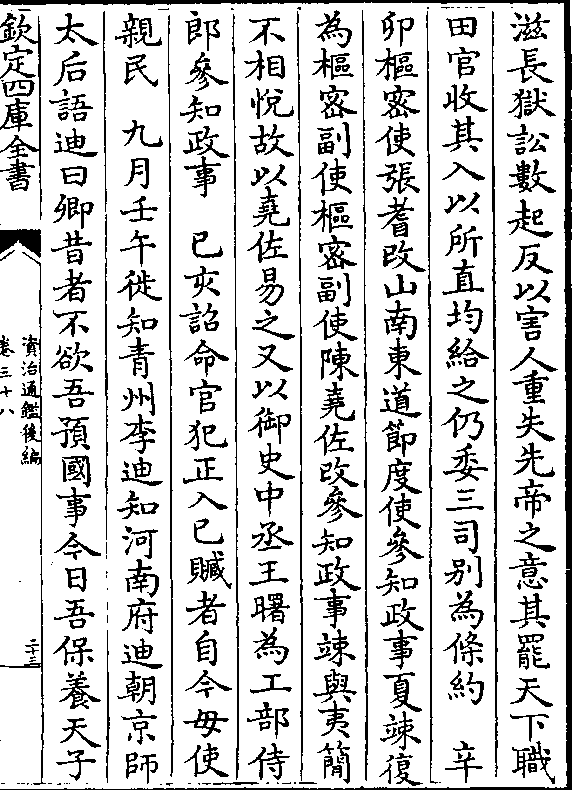 滋長獄訟數起反以害人重失先帝之意其罷天下職
田官收其入以所直均給之仍委三司别為條約　辛
卯樞密使張耆改山南東道節度使參知政事夏竦復
為樞密副使樞密副使陳堯佐改參知政事竦與夷簡
不相悅故以堯佐易之又以御史中丞王曙為工部侍
郎參知政事　已亥詔命官犯正入已贓者自今毋使
親民　九月壬午徙知青州李迪知河南府迪朝京師
太后語迪曰卿昔者不欲吾預國事今日吾保養天子
欽定四庫全書
資治通鑑後編
卷三十八
二十三